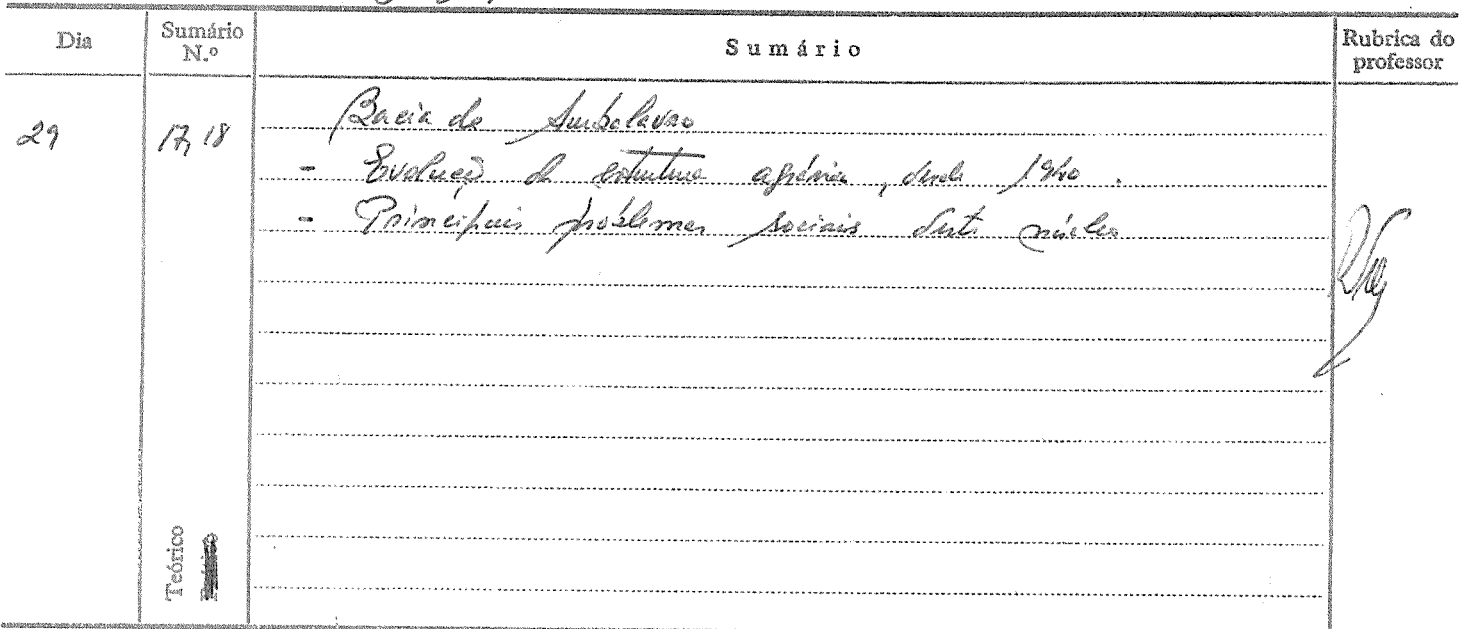 Dia
Sumário N.º
Sumário
Rubrica do professor
29
17, 18
Bacia de
- Evolução da estrutura agrária, desde 1940.
- Principais problemas sociais deste núcleo
Teórico